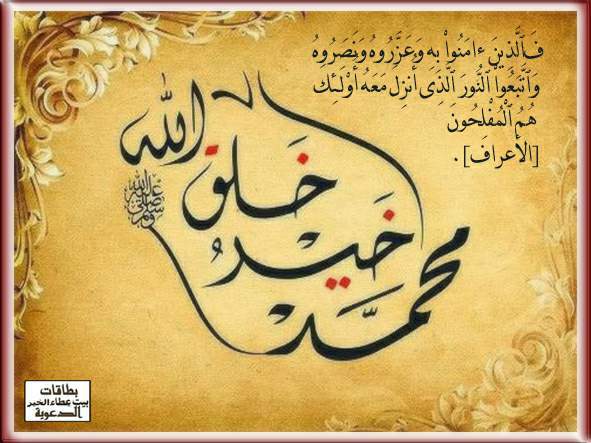 فَالَّذِينَ ءَامَنُوا۟ بِهِ وَعَزَّرُوهُ وَنَصَرُوهُ
وَاتَّبَعُوا۟ النُّورَ الَّذِى أُنزِلَ مَعَهُ أُوْلَـٰئِكَ
هُمُ الْمُفْلِحُونَ
[الأعراف] .
محمد
خير
خلق
الله
صلى الله عليه وسلم
بطاقات
بيت عطاء الخير
الدعوية